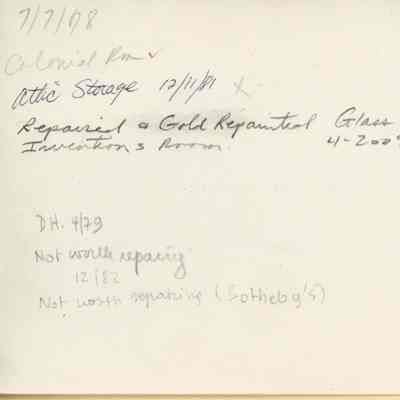 7/7/08
Colonial Rm ✓
Attic Storage 12/11/81 X
Repaired & Gold Repainted Glass
Inventions Room. 4-200
DH. 4/79
Not worth repairing
12/82
Not worth repairing (Sotheby's)